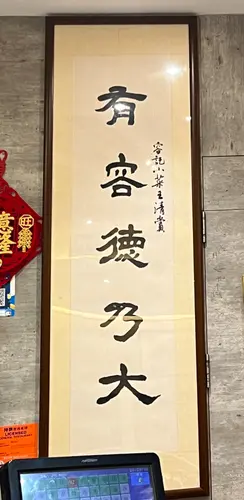 有容德乃大
容記小菜王清賞
旺
意隆
LICENSED